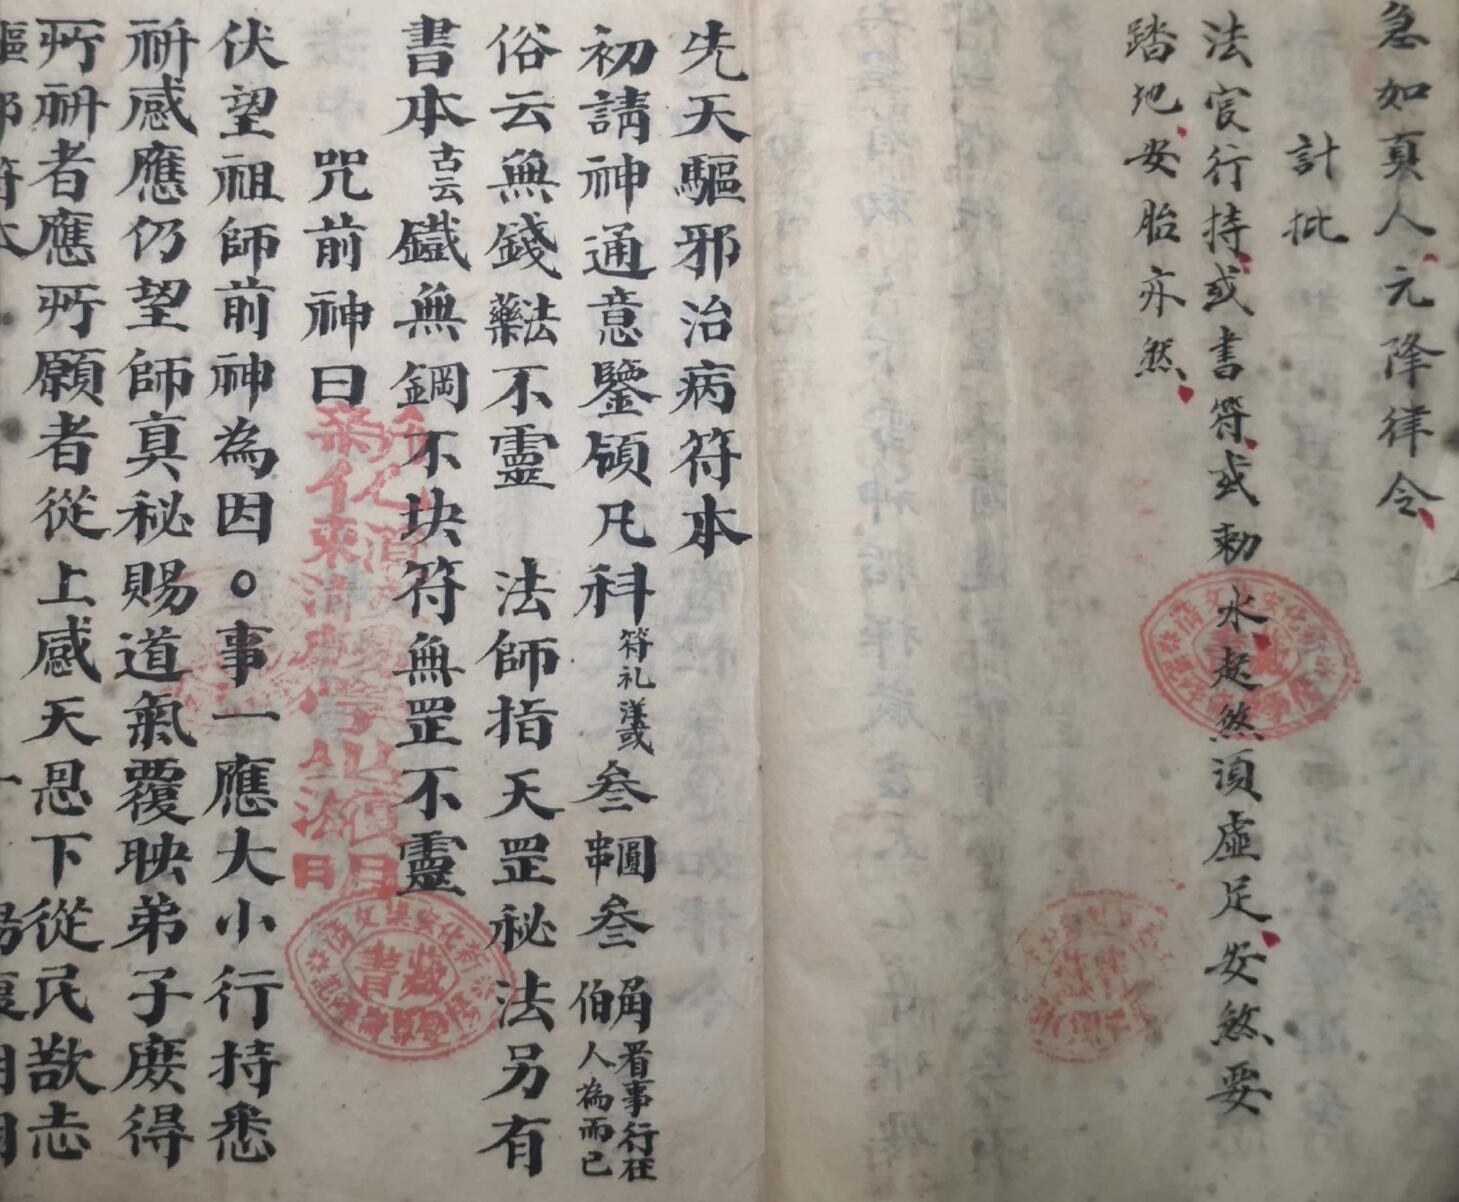 急如真人元降律令
計批
法官行持或書符或勅水起煞須虛足安煞要
踏地安胎亦然
先天驅邪治病符本
初請神通意鑒領凡科符礼漾或叁串圓叁伯角看事行在人為而已
俗云無錢藥法不靈 法師指天罡秘法另有
書本古云鐵無鋼不块符無罡不靈
咒前神曰
伏望祖師前神為因○事一應大小行持悉
祈感應仍望師真秘賜道氣覆映弟子庶得
所祈者應所願者從上感天恩下從民歆志